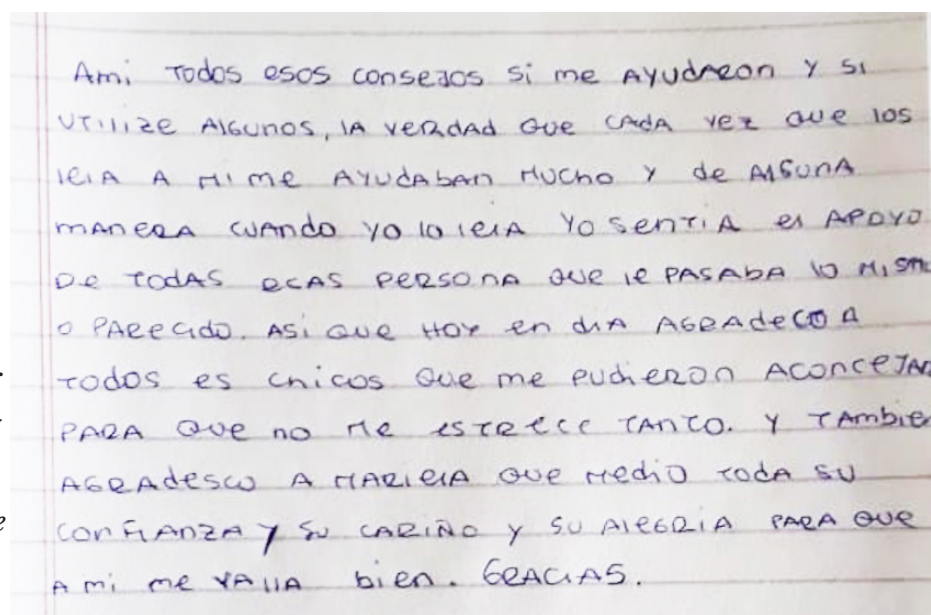 Ami todos esos consejos si me AYUDARON Y SI
UTILIZE ALGUNOS, LA VERDAD QUE CADA VEZ QUE LOS
leia A MI me AYUDABAN MUCHO Y de ALGUNA
MANERA CUANDO YO lo leiA YO SENTIA el APOYO
De TODAS ECAS PERSONA QUE le PASABA lo MISmo
O PARECIDO. ASI QUE HOY en diA AGRADECO A
TODOS es chicos QUE me PUDIERON ACONCEJAR
PARA QUE no Me ESTRECE TANTO. Y TAMbIE
AGRADESCO A MARIELA QUE MEDIO TODA SU
CONFIANZA Y SU CARIÑO Y SU AlEGRIA PARA QUE
A mi me VAllA bien. GRACIAS.